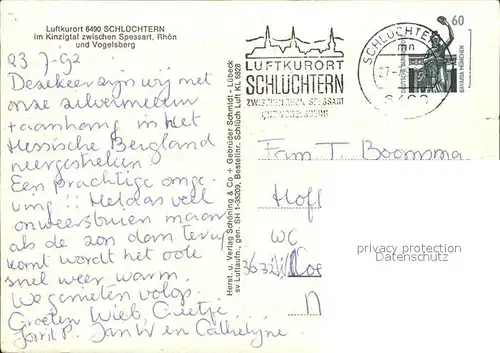 Luftkurort 6490 SCHLÜCHTERN
im Kinzigtal zwischen Spessart, Rhön
und Vogelsberg
23-7-92
Deze keer zijn wij met
onze zilvermeeuw
+ aanhang in het
Hessische Bergland
neergestreken
Een prachtige omge-
ving!! Helaas veel
onweersbuien maar
als de zon dan terug
komt wordt het ook
snel weer warm.
We genieten volop.
Groeten Wieb, Grietje
Jorrit P. Jan W en Cathelyne.
Horst. u. Verlag Schöning & Co + Gebrüder Schmidt · Lübeck
sv Luftaufn., gen. SH 1-3809, Bestellnr. Schlüch Luft KL 6828
LUFTKURORT
SCHLÜCHTERN
ZWISCHEN RHÖN, SPESSART
UND VOGELSBERG
SCHLÜCHTERN
mn
27.-
60
DEUTSCHE BUNDESPOST
BAVARIA MÜNCHEN
Fam T. Boomsma
Hofl
privacy protection
Datenschutz